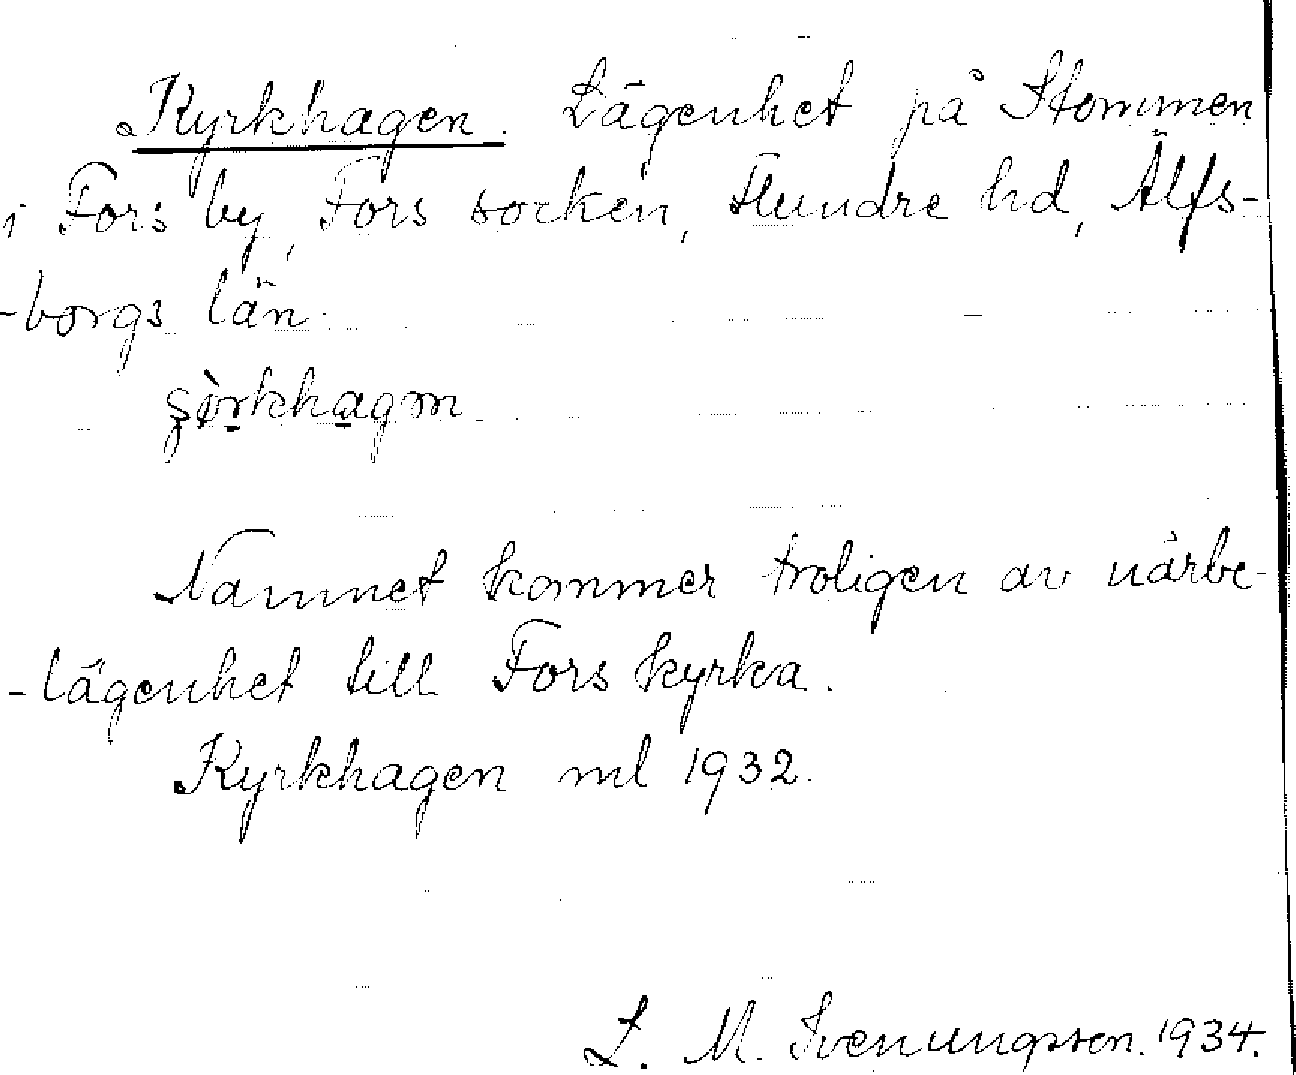 Kyrkhagen. Lägenhet på Stommen
i Fors by, Fors socken, Flundre hd, Älfs-
-borgs län.
Namnet kommer troligen av närbe-
-lägenhet till Fors kyrka.
Kyrkhagen ml 1932.
L. M. Svenungsson. 1934.